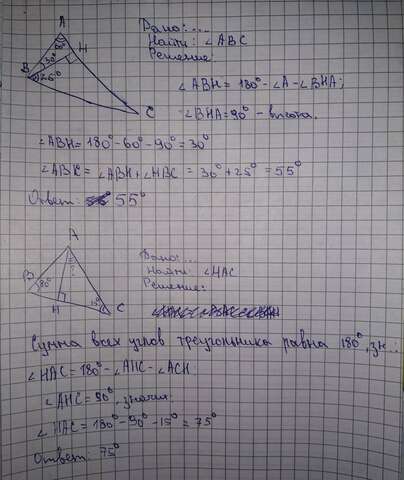 A
60°
H
30°
B
25°
C
Дано: ...
Найти: ∠ABC
Решение:
∠ABH = 180° - ∠A - ∠BHA;
∠BHA = 90° - высота.
∠ABH = 180° - 60° - 90° = 30°
∠ABC = ∠ABH + ∠HBC = 30° + 25° = 55°
Ответ: 55°
A
?
B
80°
H
15°
C
Дано: ...
Найти: ∠HAC
Решение:
Сумма всех углов треугольника равна 180°, зн.:
∠HAC = 180° - ∠AHC - ∠ACH
∠AHC = 90°, значит
∠HAC = 180° - 90° - 15° = 75°
Ответ: 75°